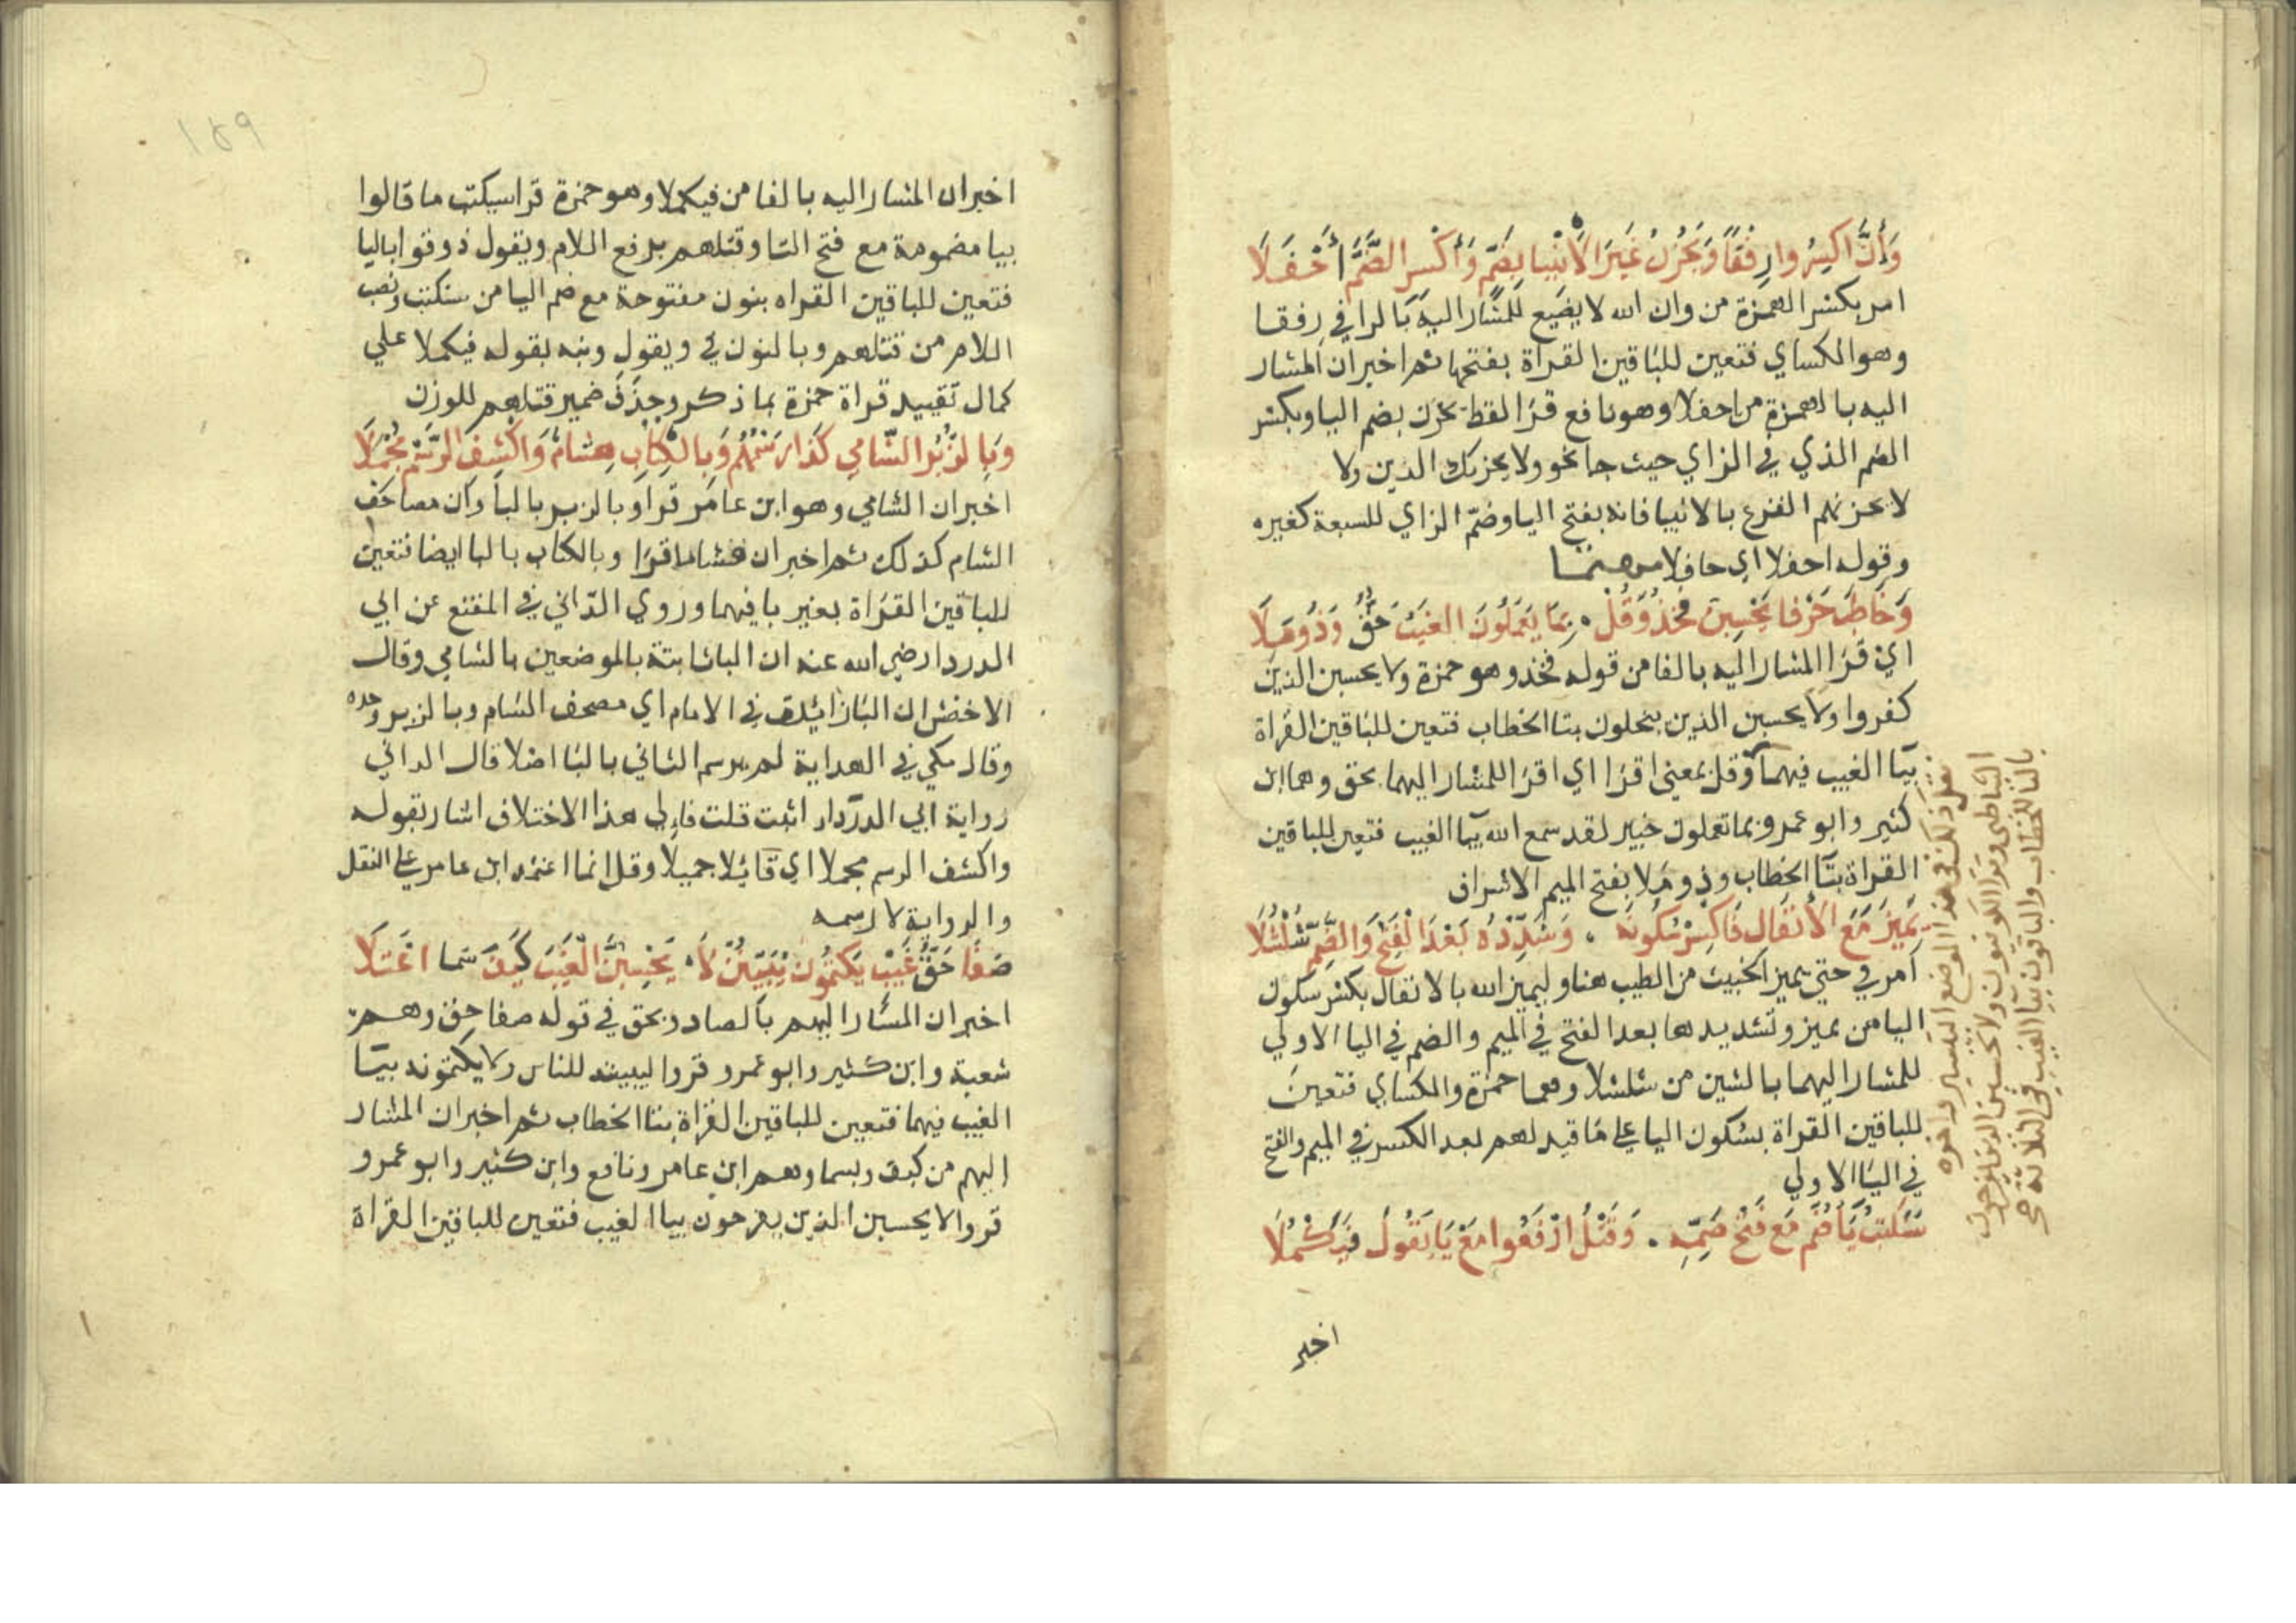 وَأَنَّ اكسِرُوا رِفْقًا وَيَحْزُنُ غَيْرَ الأَنْبِيا بِضَمٍّ وَأَكْسِرِ الضَّمَّ أَحْفَلَا
امر بكسر الهمزة من وان الله لا يضيع للمشار اليه بالرا في رفقا
وهو الكساي فتعين للباقين القراة بفتحها ثم اخبر ان المشار
اليه بالهمزة من احفلا وهو نافع قرا لفظ يحزن بضم اليا وبكسر
الضم الذي في الزاي حيث جا نحو ولا يحزنك الذين ولا
لا يحزنهم الفزع بالانبيا فانه بفتح اليا وضم الزاي للسبعة كغيره
وقوله احفلا اي حافلا
وَخَاطِبَ حَرْفا يَحْسِبنَ فَخُذْ وَقُلْ . بِمَا يَعْمَلُونَ الغَيْبُ حَقٌّ وَذُو مَلَا
اي قرا المشار اليه بالفا من قوله فخذ وهو حمزة ولا يحسبن الذين
كفروا ولا يحسبن الذين يبخلون بتا الخطاب فتعين للباقين القراة
بيا الغيب فيهما وقل بمعنى اقرا اي اقرا للمشار اليهما بحق وهما ابن
كثير وابو عمرو بما تعملون خبير لقد سمع الله بيا الغيب فتعين للباقين
القراة بتا الخطاب وذو ملا بفتح الميم الاشراف
يَمِيزَ مَعَ الأَنْفَالِ فَاكْسِرْ سُكُونَهُ . وَشَدِّدْهُ بَعْدَ الْفَتْحِ وَالضَّمِّ شُلْشُلَا
امر في حتي يميز الخبيث من الطيب هنا وليميز الله بالانفال بكسر سكون
اليا من يميز وتشديدها بعد الفتح في الميم والضم في اليا الاولي
للمشار اليهما بالشين من شلشلا وهما حمزة والكساي فتعين
للباقين القراة بسكون اليا علي ما قيد لهم بعد الكسر في الميم والفتح
في اليا الاولي
سَنَكْتُبُ يَاءٌ ضُمَّ مَعْ فَتْحِ ضَمِّهِ . وَقَتْلُ ارْفَعُوا مَعْ يَا يَقُولُ فَيَكْمُلَا
اخبر
ذلك في هذا الموضع التيسير
الشاطبي وقرا الكوفيون ولا تحسبن الذين يفرحون
بالتا للخطاب والباقون بيا الغيب في الثلاثة صح
١٤٩
اخبر ان المشار اليه بالفا من فيكملا وهو حمزة قرا سيكتب ما قالوا
بيا مضمومة مع فتح التا وقتلهم برفع اللام ويقول ذوقوا باليا
فتعين للباقين القراه بنون مفتوحة مع ضم اليا من سنكتب ونصب
اللام من قتلهم وبالنون في ويقول ونبه بقوله فيكملا علي
كمال تقييد قراة حمزة بما ذكر وحذف ضمير قتلهم للوزن
وَبِالزُّبُرِ الشَّامِي كَذَا رَسْمُهُمْ وَبِالْكِتَابِ هِشَامٌ وَاكْشِفِ الرَّسْمَ مُجْمِلَا
اخبر ان الشامي وهو ابن عامر قرا وبالزبر بالبا وان مصاحف
الشام كذلك ثم اخبر ان هشاما قرا وبالكتاب بالبا ايضا فتعين
للباقين القراة بغير با فيهما وروي الداني في المقنع عن ابي
الدردا رضي الله عنه ان البا ثابتة بالموضعين بالشامي وقال
الاخفش ان البا زائدة في الامام اي مصحف الشام وبالزبر وحده
وقال مكي في الهداية لم يرسم الثاني بالبا اصلا قال الداني
رواية ابي الدردا اثبت قلت فالي هذا الاختلاف اشار بقوله
واكشف الرسم مجملا اي قائلا جميلا وقل انما اعتمد ابن عامر علي النقل
والرواية لا رسمه
صَفَا حَقُّ غَيْبٍ يَكتُمُونَ يُبَيِّنُنَّ لَا . يَحْسِبَنَّ الْغَيْبُ كَيْفَ سَما اعْتَلَا
اخبر ان المشار اليهم بالصاد وبحق في قوله صفا حق وهم
شعبة وابن كثير وابو عمرو قروا ليبيننه للناس ولا يكتمونه بيا
الغيب فيهما فتعين للباقين القراة بتا الخطاب ثم اخبر ان المشار
اليهم من كيف وبسما وهم ابن عامر ونافع وابن كثير وابو عمرو
قروا لا يحسبن الذين يفرحون بيا الغيب فتعين للباقين القراة